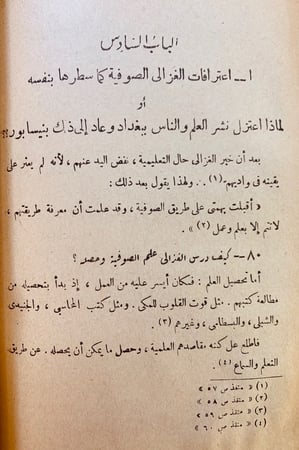 الباب السادس
١ — اعترافات الغزالى الصوفية كما سطرها بنفسه
أو
لماذا اعتزل نشر العلم والناس ببغداد وعاد إلى ذلك بنيسابور؟؟
بعد أن خبر الغزالى حال التعليمية ، نفض اليد عنهم ، لأنه لم يعثر على
يقينه فى واديهم (١) . . ولهذا يقول بعد ذلك :
« أقبلت بهمتى على طريق الصوفية ، وقد علمت أن معرفة طريقتهم ،
لا تتم إلا بعلم وعمل (٢) » .
٨٠ — كيف درس الغزالى علم الصوفية وحصله ؟
أما تحصيل العلم : فكان أيسر عليه من العمل ، إذ بدأ بتحصيله من
مطالعة كتبهم . مثل قوت القلوب للمكى . ومثل كتب المحاسبى ، والجنيدى
والشبلى ، والبسطامى ، وغيرهم (٣) .
فاطلع على كنه مقاصدهم العلمية ، وحصل ما يمكن أن يحصله . عن طريق
التعلم والسماع (٤) .
(١) « منقذ ص ٥٧ »
(٢) « منقذ ص ٥٨ »
(٣) « منقذ ص ٥٩ »
(٤) « منقذ ص ٦٠ »